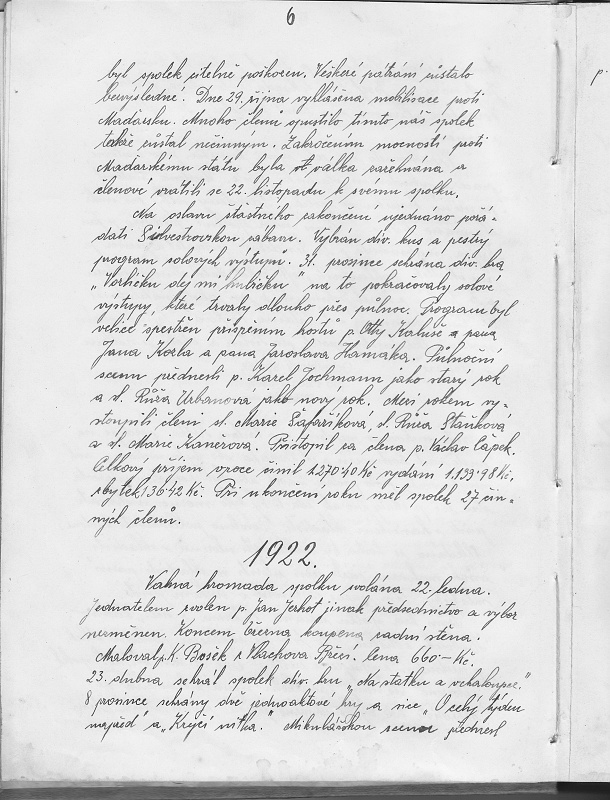 6
byl spolek citelně poškozen. Veškeré pátrání zůstalo
bezvýsledné. Dne 29. října vyhlášena mobilisace proti
Maďarsku. Mnoho členů opustilo tímto náš spolek
takže zůstal nečinným. Zakročením mocností proti
Maďarskému státu byla válka zažehnána a
členové vrátili se 22. listopadu k svemu spolku.
Na oslavu šťastného zakončení ujednáno pořá-
dati Silvestrovskou zábavu. Vybrán div. kus a pestrý
program solových výstupů. 31. prosince sehrána div. hra
„Vorličku dej mi hubičku" na to pokračovaly solové
výstupy, které trvaly dlouho přes půlnoc. Program byl
velice zpestřen přispěním hostů p. Otty Kaluše a pana
Jana Kozla a pana Jaroslava Hamáka. Půlnoční
scenu přednesli p. Karel Jochmann jako starý rok
a sl. Růža Urbanová jako nový rok. Mezi rokem vy-
stoupili členi sl. Marie Šafaříková, sl. Růža Staňková
a sl. Marie Kaněrová. Přistoupil za člena p. Václav Čápek.
Celkový příjem v roce činil 1.270·40 Kč vydání 1.133·98 Kč,
zbytek 136·42 Kč. Při ukončení roku měl spolek 27 čin-
ných členů.
1922.
Valná hromada spolku svolána 22. ledna.
Jednatelem zvolen p. Jan Jerhot jinak předsednictvo a výbor
nezměněn. Koncem března koupena zadní stěna.
Maloval p. K. Bošek z Vlachova Březí. Cena 660·– Kč.
23. dubna sehrál spolek div. hru „Na statku a v chaloupce."
8 prosince sehrány dvě jednoaktové hry a sice „O celý týden
napřed" a „Krejčí nitka." Mikulášskou scenu přednesl
p.